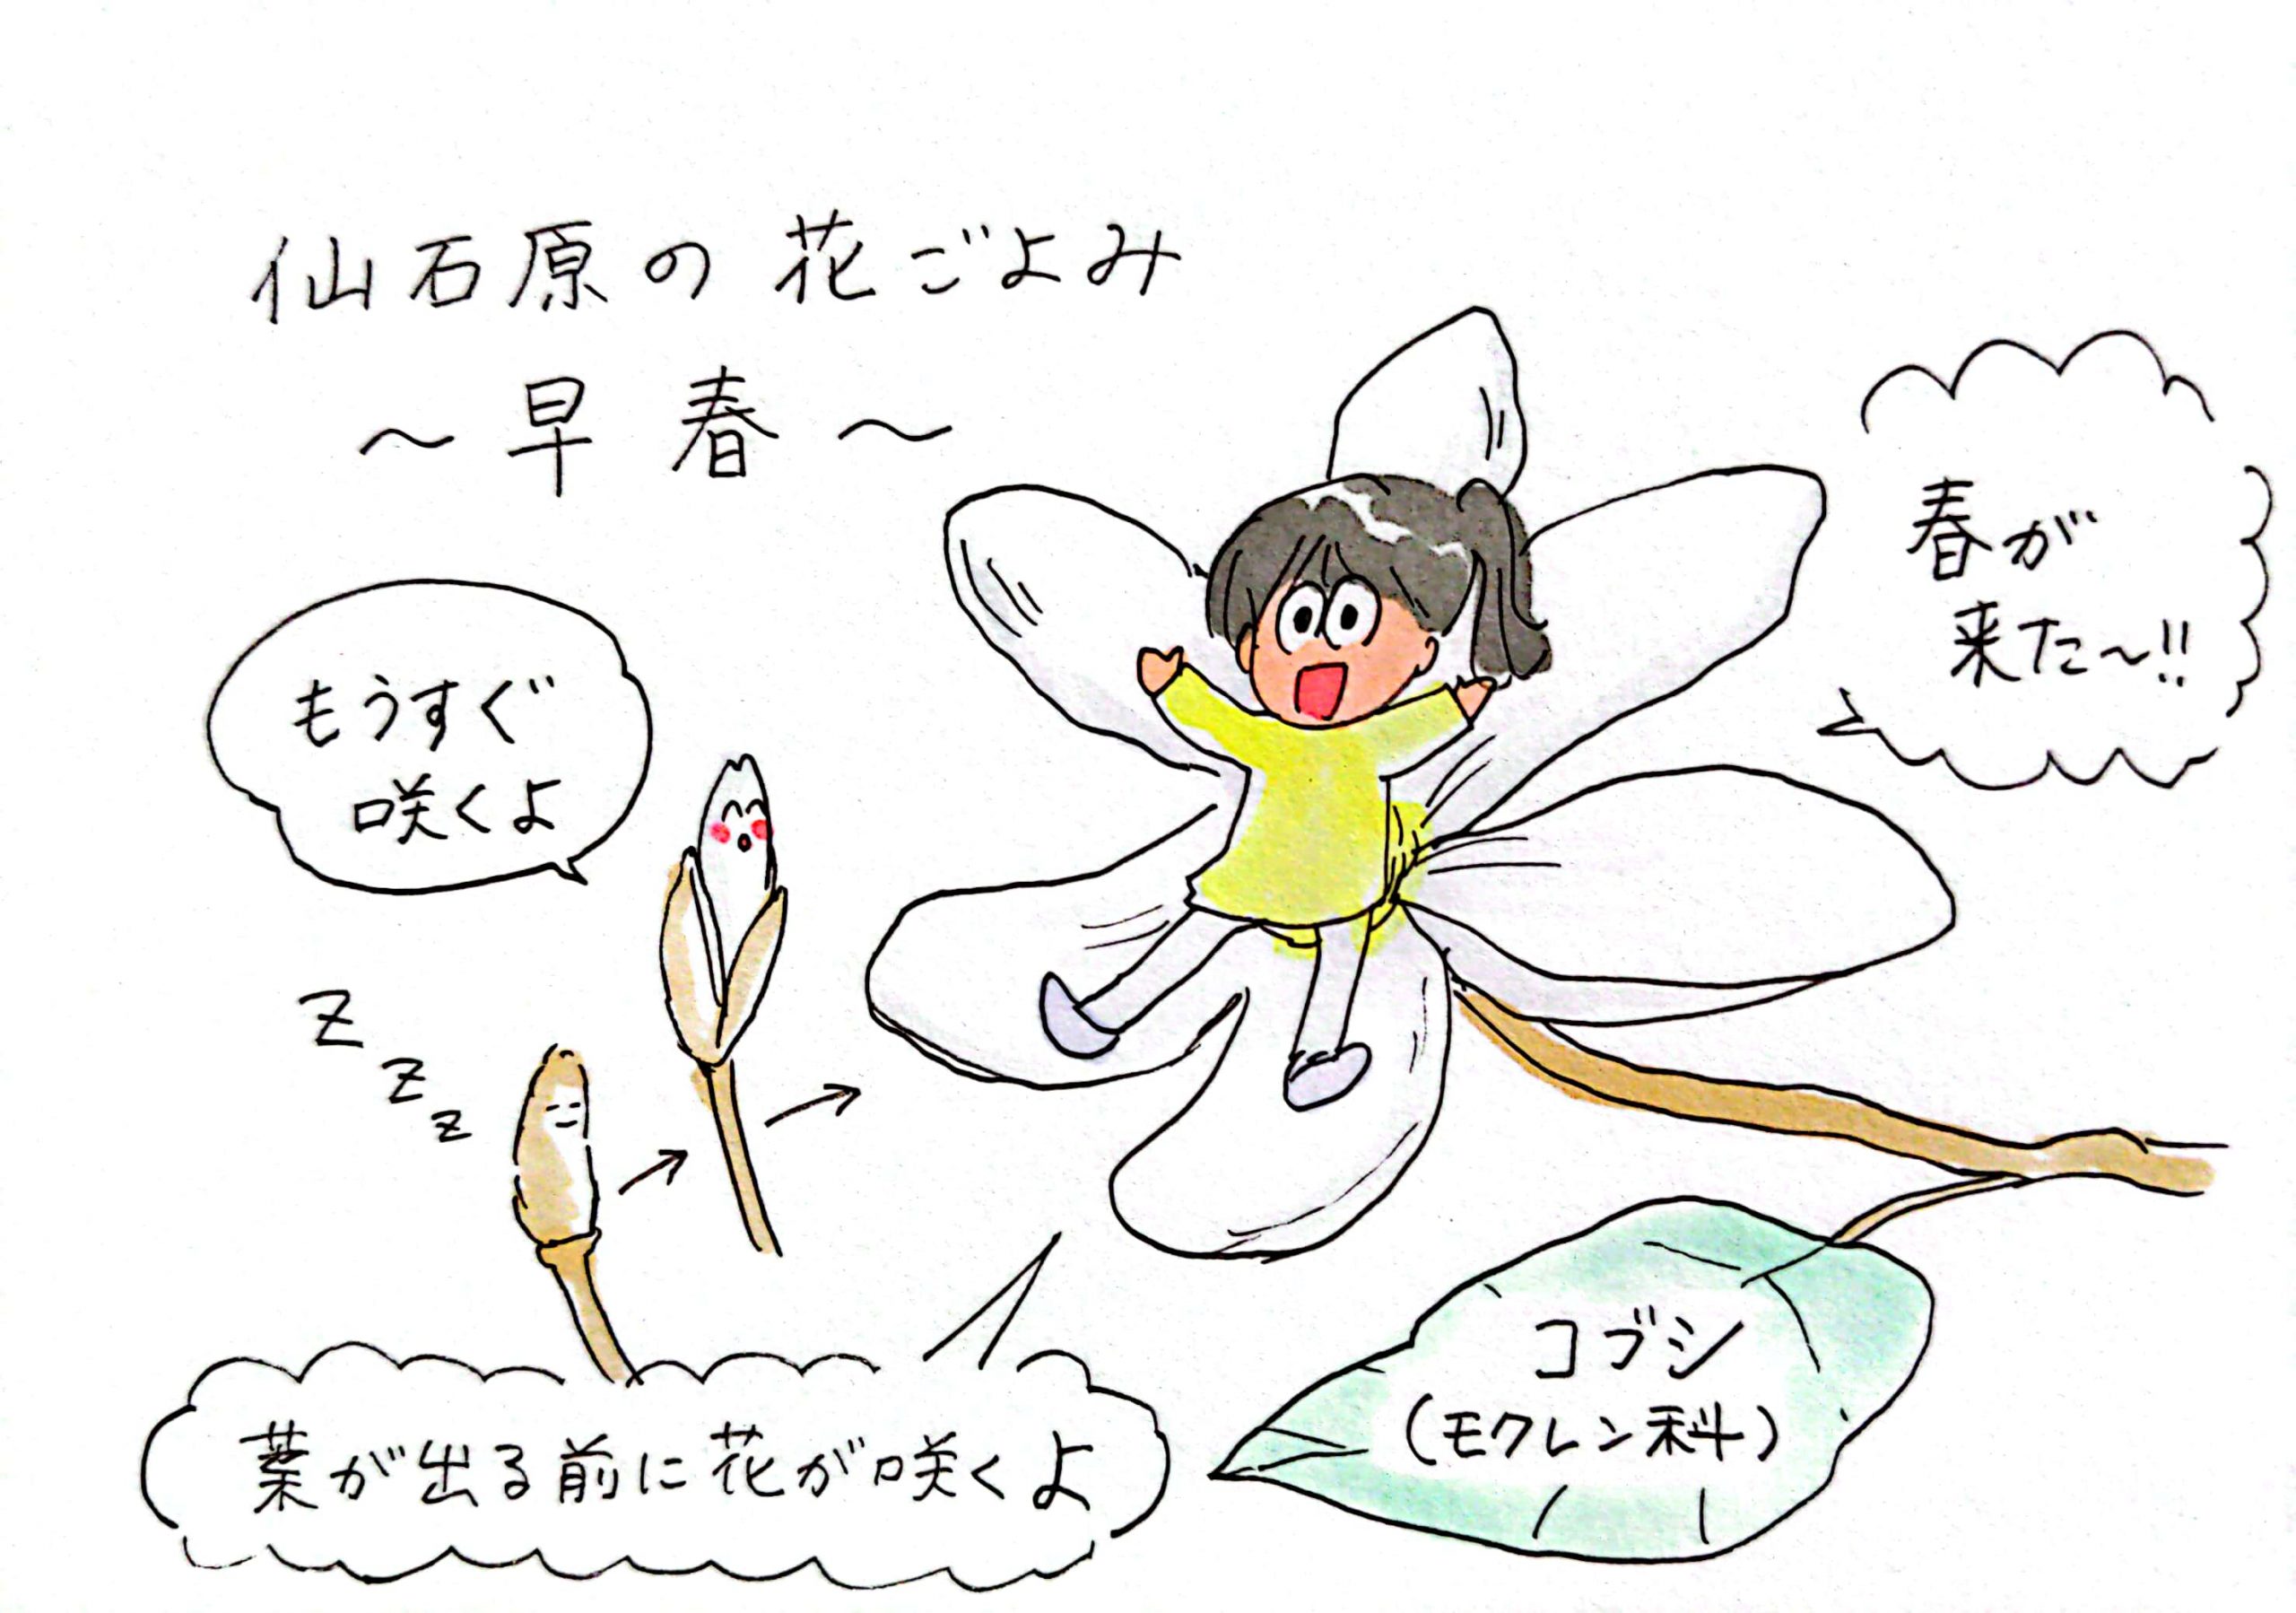 仙石原の花ごよみ
～早春～
春が
来た～!!
もうすぐ
咲くよ
Z
Z
Z
葉が出る前に花が咲くよ
コブシ
(モクレン科)